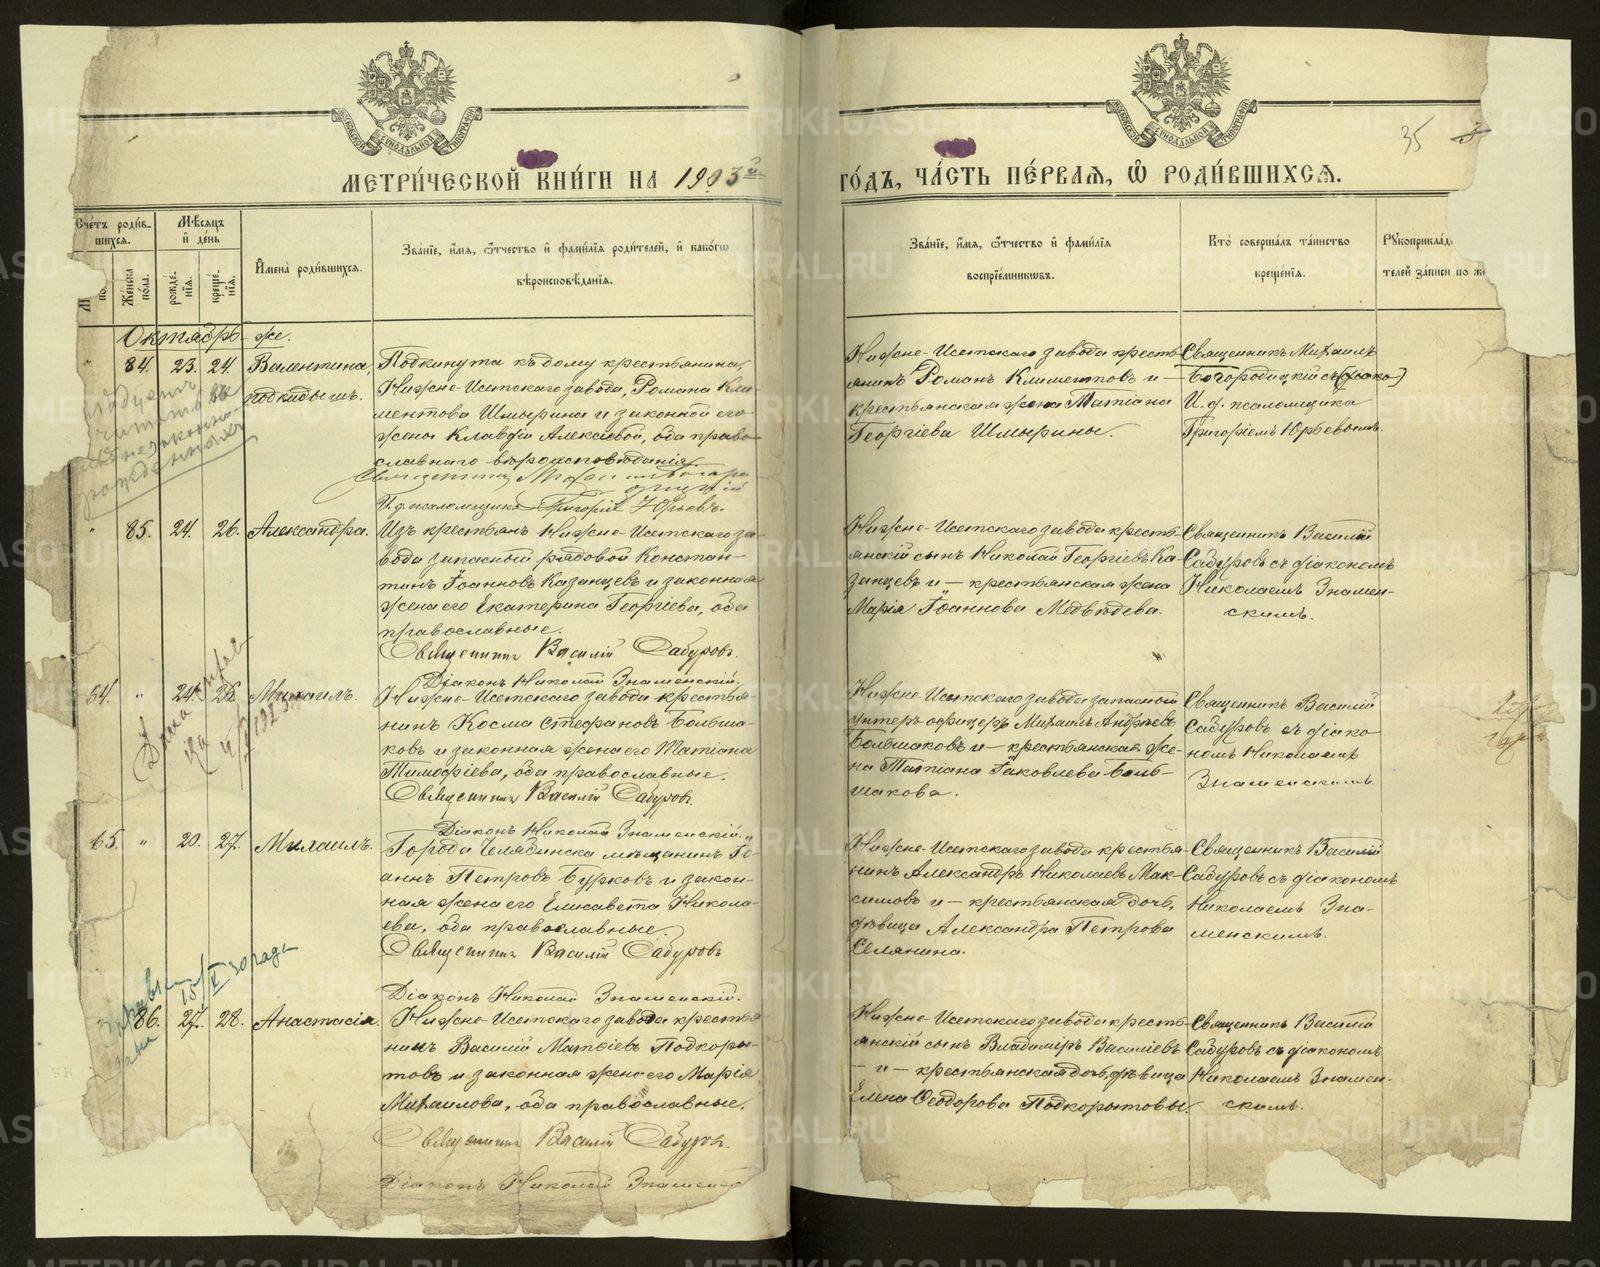 МЕТРИ́ЧЕСКОЙ КНИ́ГИ НА 1903й
ГО́ДЪ, ЧА́СТЬ ПЕ́РВАЯ, Ѡ҆ РОДИ́ВШИХСѦ.
35
Счётъ роди́в-
шихся.
Же́нска
по́ла.
Мѣ́сѧцъ
и҆ де́нь
рожде́-
нїѧ.
креще́-
нїѧ.
И҆мена̀ роди́вшихсѧ.
Зва́нїе, и҆́мѧ, ѻ҆́тчество и҆ фами́лїѧ роди́телей, и҆ како́гѡ
вѣроисповѣ́данїѧ.
Зва́нїе, и҆́мѧ, ѻ҆́тчество и҆ фами́лїѧ
воспрїе́мникѡвъ.
Кто̀ соверша́лъ та́инство
креще́нїѧ.
Рꙋкоприкла́д
телей за́писи по же
Октябрь же.
84. 23. 24. Валентина,
подкидышъ.
Подкинута къ дому крестьянина,
Нижне-Исетскаго завода, Романа Кли-
ментова Шмырина и законной его
жены Клавдіи Алексѣевой, оба право-
славнаго вѣроисповѣданія.
И. д. псаломщика Григорій Юрьевъ.
Нижне-Исетскаго завода кресть-
янинъ Романъ Климентовъ и —
крестьянская жена Татіана
Георгіева Шмырины.
Священникъ Михаилъ
Богородицкій съ
И. д. псаломщика
Григоріемъ Юрьевымъ.
85. 24. 26. Александра.
Изъ крестьянъ Нижне-Исетскаго за-
вода запасный рядовой Констан-
тинъ Іоанновъ Казанцевъ и законная
жена его Екатерина Георгіева, оба
православные.
Священникъ Василій Сабуровъ.
Діаконъ Николай Знаменскій.
Нижне-Исетскаго завода кресть-
янскій сынъ Николай Георгіевъ Ка-
занцевъ и — крестьянская жена
Марія Іоаннова Медвѣдева.
Священникъ Василій
Сабуровъ съ діакономъ
Николаемъ Знамен-
скимъ.
64. " 24. 26. Михаилъ.
Нижне-Исетскаго завода крестья-
нинъ Косма Стефановъ Больша-
ковъ и законная жена его Татіана
Тимофіева, оба православные.
Священникъ Василій Сабуровъ.
Діаконъ Николай Знаменскій.
Нижне-Исетскаго завода запасной
унтеръ-офицеръ Михаилъ Андреевъ
Большаковъ и — крестьянская же-
на Татіана Іаковлева Боль-
шакова.
Священникъ Василій
Сабуровъ съ діако-
номъ Николаемъ
Знаменскимъ.
65. " 20. 27. Михаилъ.
Города Челябинска мѣщанинъ Іо-
аннъ Петровъ Бурковъ и закон-
ная жена его Елисавета Никола-
ева, оба православные.
Священникъ Василій Сабуровъ
Діаконъ Николай Знаменскій.
Нижне-Исетскаго завода крестья-
нинъ Александръ Николаевъ Мак-
симовъ и — крестьянская дочь,
дѣвица Александра Петрова
Селянина.
Священникъ Василій
Сабуровъ съ діакономъ
Николаемъ Зна-
менскимъ.
86. 27. 28. Анастасія.
Нижне-Исетскаго завода крестья-
нинъ Василій Матѳіевъ Подкоры-
товъ и законная жена его Марія
Михаилова, оба православные.
Священникъ Василій Сабуровъ.
Діаконъ Николай Знаменс
Нижне-Исетскаго завода кресть-
янскій сынъ Владиміръ Василіевъ
— и — крестьянская дочь, дѣвица
Елена Ѳеодорова Подкорытовы.
Священникъ Василій
Сабуровъ съ діакономъ
Николаемъ Знамен-
скимъ.
METRIKI.GASO-URAL.RU